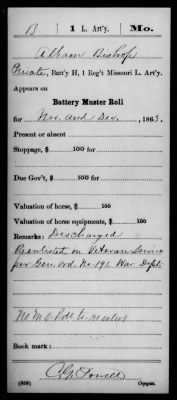 B 1 L. Art'y. Mo.
Albion Bishop
Private, Batt'y H, 1 Reg't Missouri L. Art'y.
Appears on
Battery Muster Roll
for Nov. and Dec., 1863.
Present or absent
Stoppage, $ 100 for
Due Gov't, $ 100 for
Valuation of horse, $ 100
Valuation of horse equipments, $ 100
Remarks: Discharged
Reenlisted as Veteran
per Gen. Ord. No. 191 War Dept.
No M. O. Roll
Book mark:
(858) Copyist.